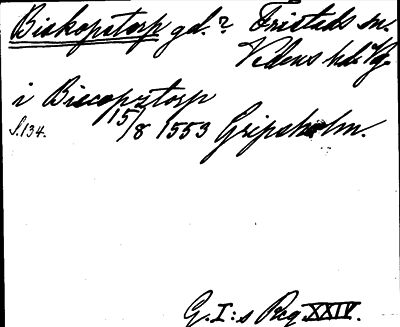 Biskopstorp gd.? Fristads sn.
Vedens hd. Vg.
i Biscopztorp
S.134. 15/8 1553 Gripsholm.
G.I:s Reg XXIV.